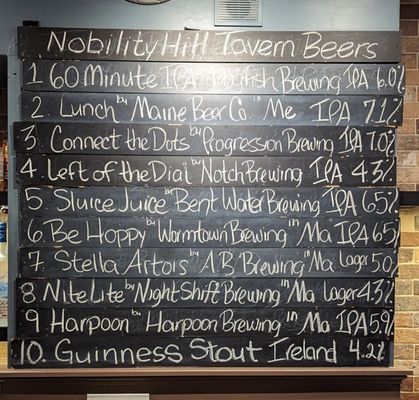 Nobility Hill Tavern Beers
1 60 Minute IPA Dogfish Brewing IPA 6.0%
2 Lunch by Maine Beer Co. in Me IPA 7.1%
3. Connect the Dots by Progression Brewing IPA 7.0%
4. Left of the Dial by Notch Brewing IPA 4.3%
5 Sluice Juice by Bent Water Brewing IPA 6.5%
6. Be Hoppy by Wormtown Brewing in Ma IPA 6.5%
7. Stella Artois by A.B. Brewing in Ma Lager 5.0%
8 Nite Lite by Night Shift Brewing in Ma Lager 4.3%
9. Harpoon by Harpoon Brewing in Ma IPA 5.9%
10. Guinness Stout Ireland 4.2%